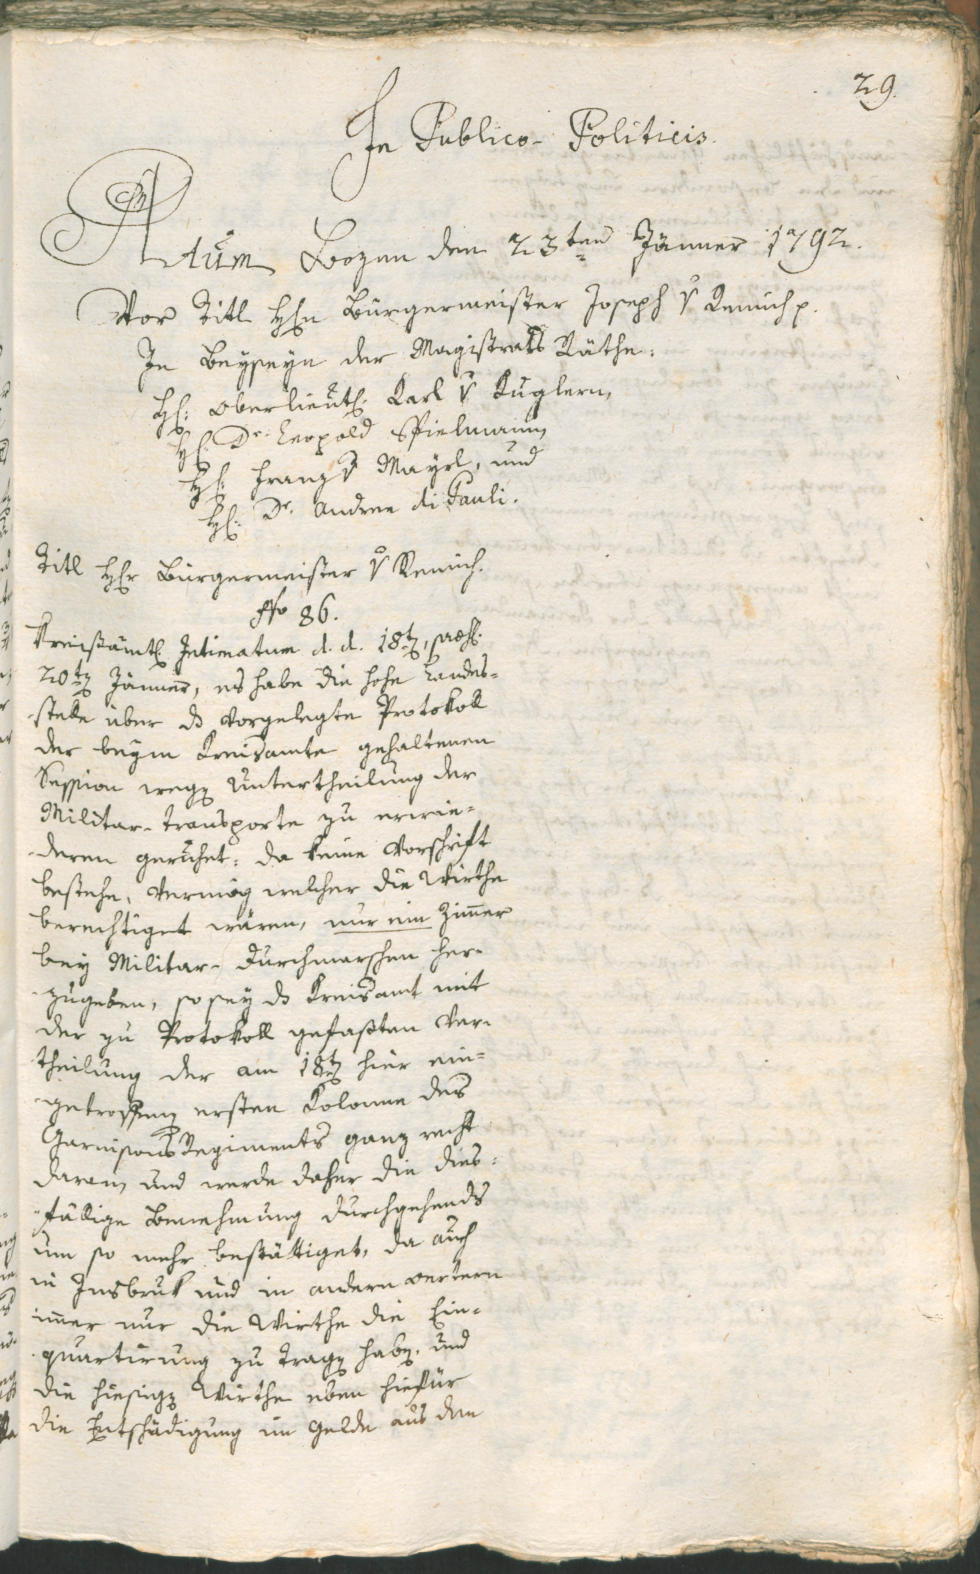 29.
In Publico-Politicis.
Actum Bozen den 23ten Jänner 1792.
Vor Titl Hhn Bürgermeister Joseph v Remich p.
In Beyseyn der Magistrats Räthe:
Hh: Oberlieuth: Karl v Kuglern,
Hh: Dr. Leopold Spielmann,
Hh: Franz v Mayrl, und
Hh: Dr. Andree di Pauli.
Titl Hhr Bürgermeister v Remich.
No 86.
Kreisämtl Intimatum d. d. 18t, praes.
20t Jänner, es habe die hohe Landes-
stelle über ds vorgelegte Protokoll
der beym Kreisamte gehaltenen
Session weg Untertheilung der
Militar-Transporte zu erwie-
deren geruhet: da keine Vorschrift
bestehe, vermög welcher die Wirthe
berechtiget wären, nur ein Zimmer
bey Militar-Durchmarschen her-
zugeben, so sey ds Kreisamt mit
der zu Protokoll gefaßten Ver-
theilung der am 18t hier ein-
getroffenen ersten Kolonne des
Garnisons Regiments ganz recht
daran, und werde daher die dies-
fällige Benehmung durchgehends
um so mehr bestättiget, da auch
in Insbruk und in andern Oertern
immer nur die Wirthe die Ein-
quartierung zu tragen haben, und
die hiesigen Wirthe eben hiefür
die Entschädigung im Gelde aus dem